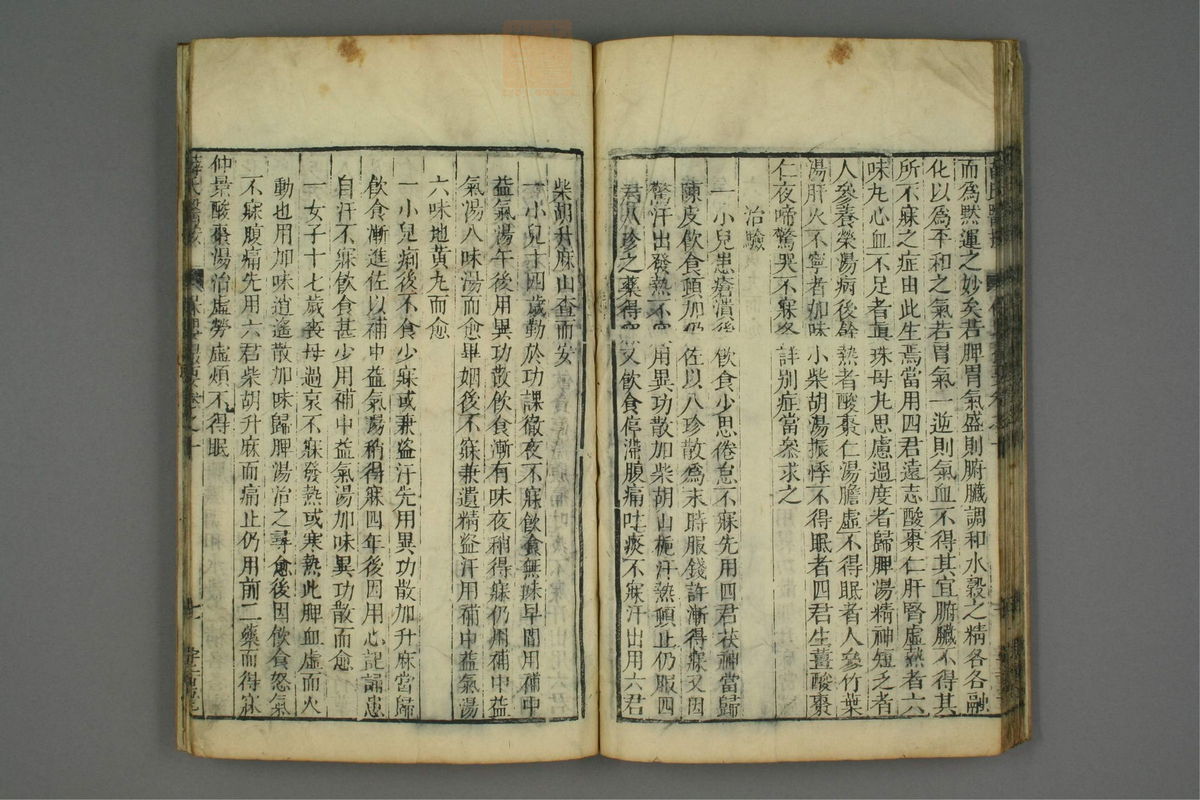 而爲黙運之妙矣若脾胃氣盛則腑臟調和水穀之精各各融
化以爲平和之氣若胃氣一逆則氣血不得其宜腑臟不得其
所不寐之症由此生焉當用四君遠志酸棗仁肝腎虛熱者六
味丸心血不足者眞珠母丸思慮過度者歸脾湯精神短乏者
人參養榮湯病後餘熱者酸棗仁湯膽虛不得眠者人參竹葉
湯肝火不寧者加味小柴胡湯振悸不得眠者四君生薑酸棗
仁夜啼驚哭不寐各詳別症當參求之
治驗
一小兒患瘡潰後飲食少思倦怠不寐先用四君茯神當歸
陳皮飲食頓加仍佐以八珍散爲末時服錢許漸得寐又因
驚汗出發熱不寐用異功散加柴胡山梔汗熱頓止仍服四
君八珍之藥得寐又飲食停滯腹痛吐痰不寐汗出用六君
柴胡升麻山查而安
一小兒十四歲勤於功課徹夜不寐飲食無味早間用補中
益氣湯午後用異功散飲食漸有味夜稍得寐仍用補中益
氣湯八味湯而愈畢姻後不寐兼遺精盜汗用補中益氣湯
六味地黃丸而愈
一小兒痢後不食少寐或兼盜汗先用異功散加升麻當歸
飲食漸進佐以補中益氣湯稍得寐四年後因用心記誦患
自汗不寐飲食甚少用補中益氣湯加味異功散而愈
一女子十七歲喪母過哀不寐發熱或寒熱此脾血虛而火
動也用加味逍遙散加味歸脾湯治之尋愈後因飲食怒氣
不寐腹痛先用六君柴胡升麻而痛止仍用前二藥而得寐
仲景酸棗湯治虛勞虛煩不得眠